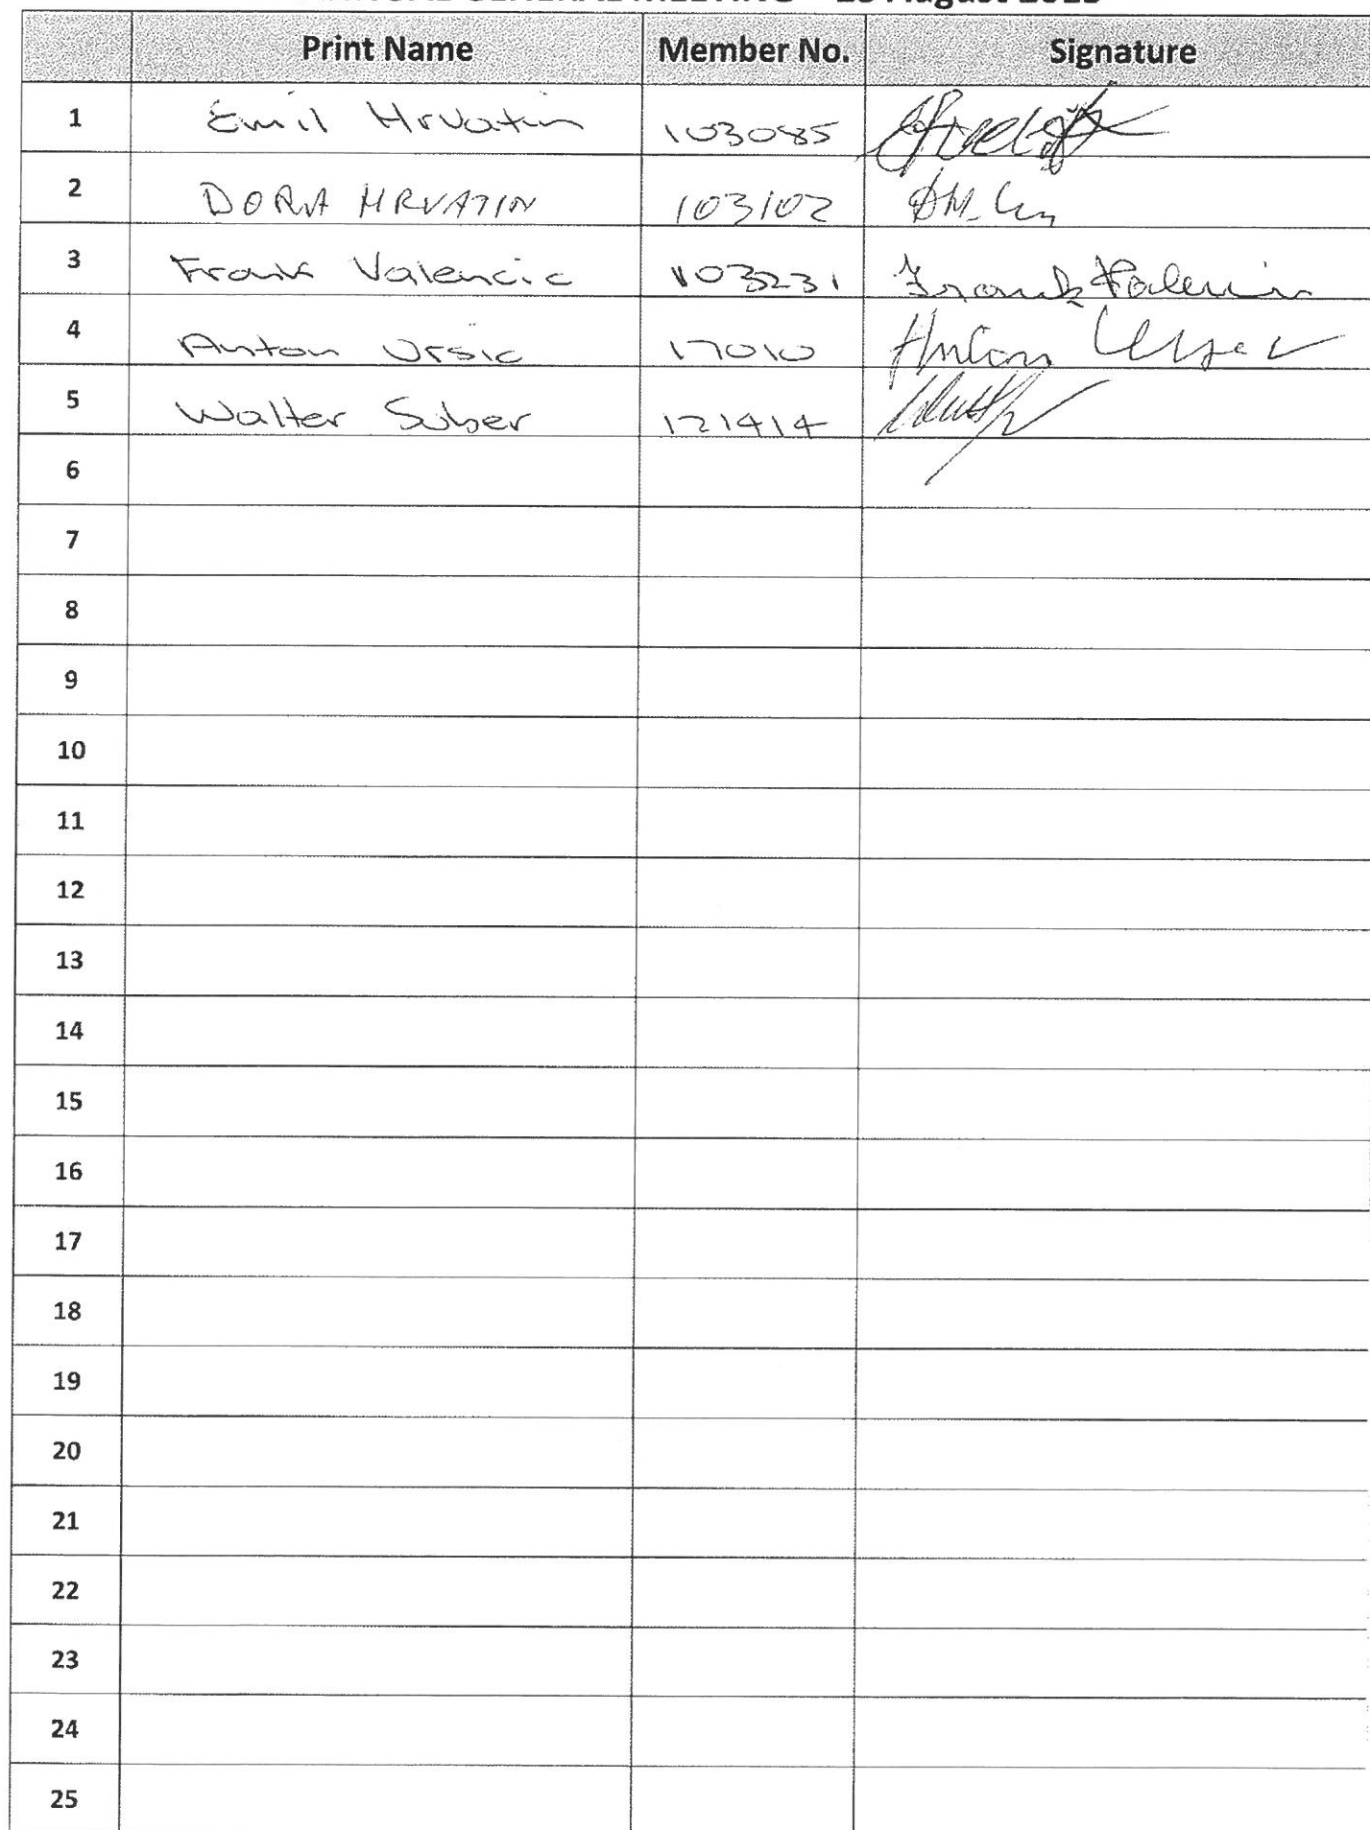 GENERAL MEETING
Print Name Member No. Signature
1 Emil Hrvatin 103085
2 DORA HRVATIN 103102
3 Frank Valencic 103231 Frank Valencic
4 Anton Ursic 17010 Anton Ursic
5 Walter Suber 121414
6
7
8
9
10
11
12
13
14
15
16
17
18
19
20
21
22
23
24
25